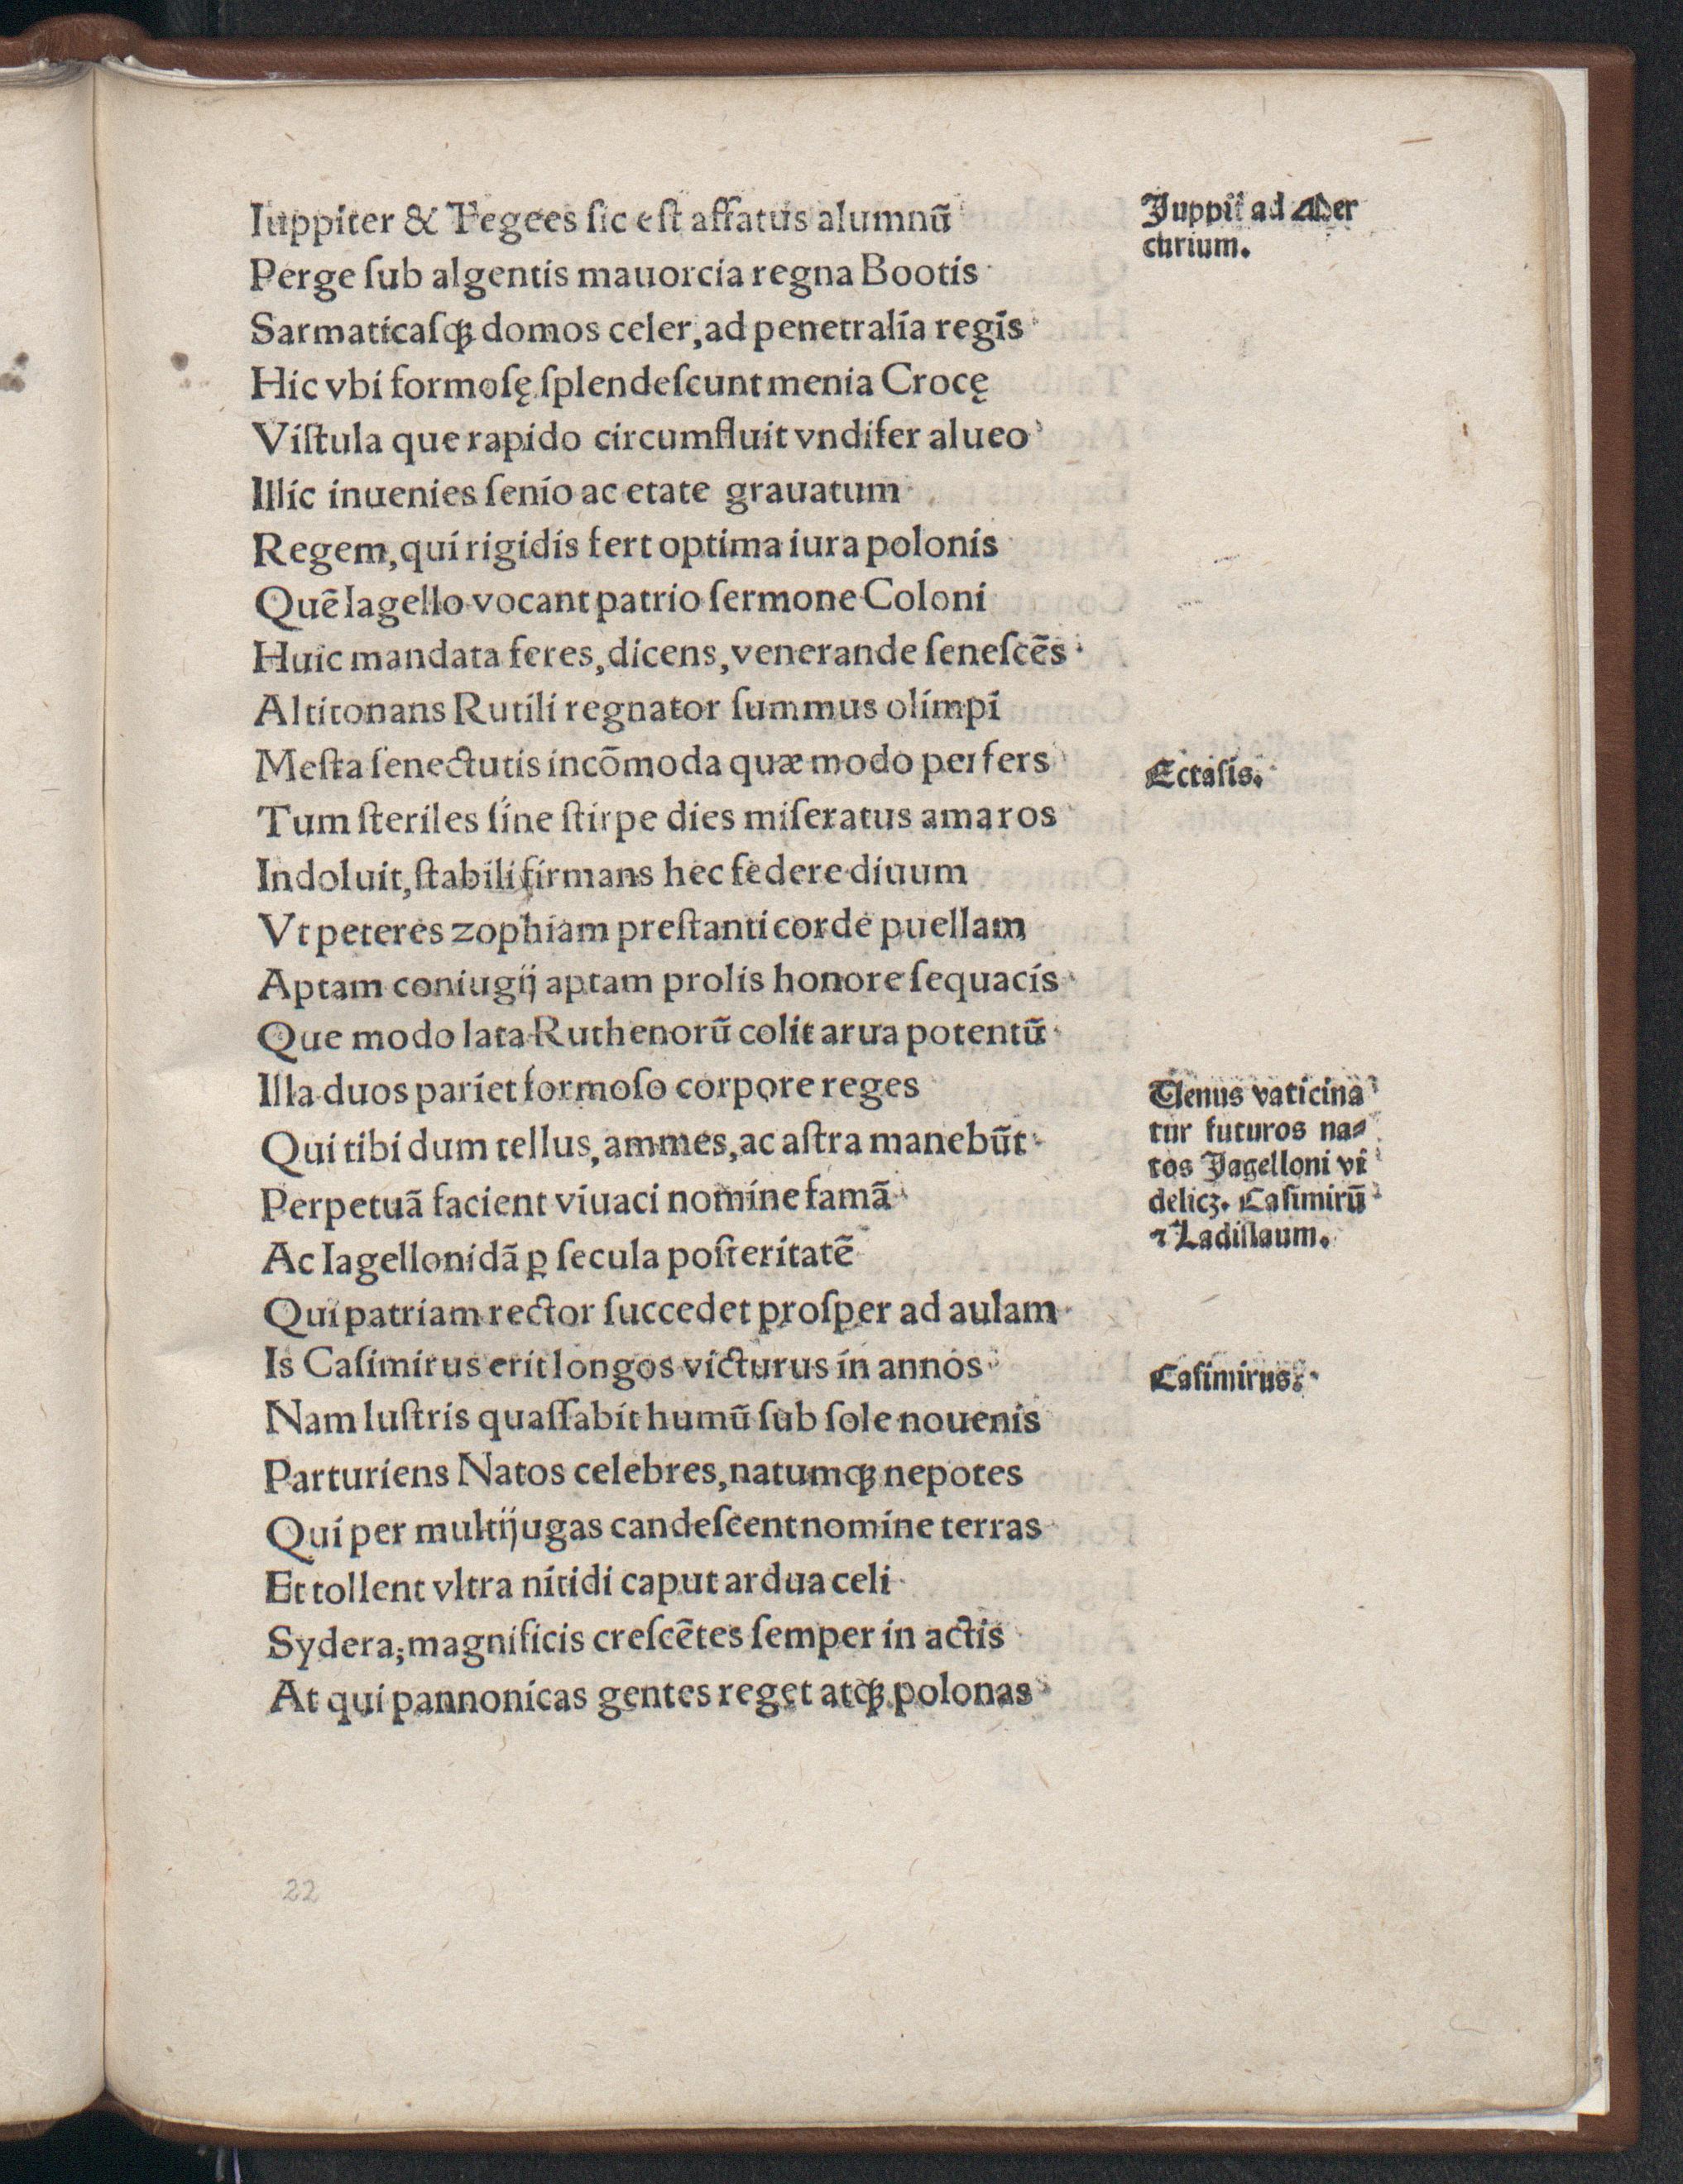 Iuppiter & Tegees ſic eſt affatus alumnū
Perge ſub algentis mauorcia regna Bootis
Sarmaticaſqꝫ domos celer, ad penetralia regis
Hic vbi formoſę ſplendeſcunt menia Crocę
Viſtula que rapido circumfluit vndifer alueo
Illic inuenies ſenio ac etate grauatum
Regem, qui rigidis fert optima iura polonis
Quē Iagello vocant patrio ſermone Coloni
Huic mandata feres, dicens, venerande ſeneſcēs
Altitonans Rutili regnator ſummus olimpi
Meſta ſenectutis incōmoda quæ modo perfers
Tum ſteriles ſine ſtirpe dies miſeratus amaros
Indoluit, ſtabili firmans hec federe diuum
Vt peteres zophiam preſtanti corde puellam
Aptam coniugij aptam prolis honore ſequacis
Que modo lata Ruthenorū colit arua potentū
Illa duos pariet formoſo corpore reges
Qui tibi dum tellus, ammes, ac aſtra manebūt
Perpetuā facient viuaci nomine famā
Ac Iagellonidā ꝑ ſecula poſteritatē
Qui patriam rector ſuccedet proſper ad aulam
Is Caſimirus erit longos victurus in annos
Nam luſtris quaſſabit humū ſub ſole nouenis
Parturiens Natos celebres, natumqꝫ nepotes
Qui per multijugas candeſcent nomine terras
Et tollent vltra nitidi caput ardua celi
Sydera, magnificis creſcētes ſemper in actis
At qui pannonicas gentes reget atqꝫ polonas
Juppit̄ ad Mer
curium.
Ectaſis.
Venus vaticina
tur futuros na⸗
tos Jagelloni vi
delicꝫ. Caſimirū
⁊ Ladiſlaum.
Caſimirus.
22